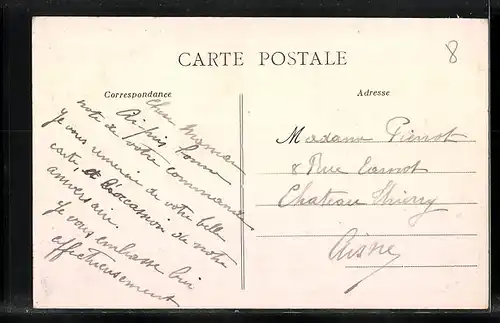 CARTE POSTALE
8
Correspondance
Adresse
Chère Maman
Ai pris bonne
note de votre commande
Je vous remercie de votre belle
carte, à l'occasion de notre
anniversaire.
Je vous embrasse bien
affectueusement
Madame Pierrot
8 Rue Carnot
Chateau Thierry
Aisne